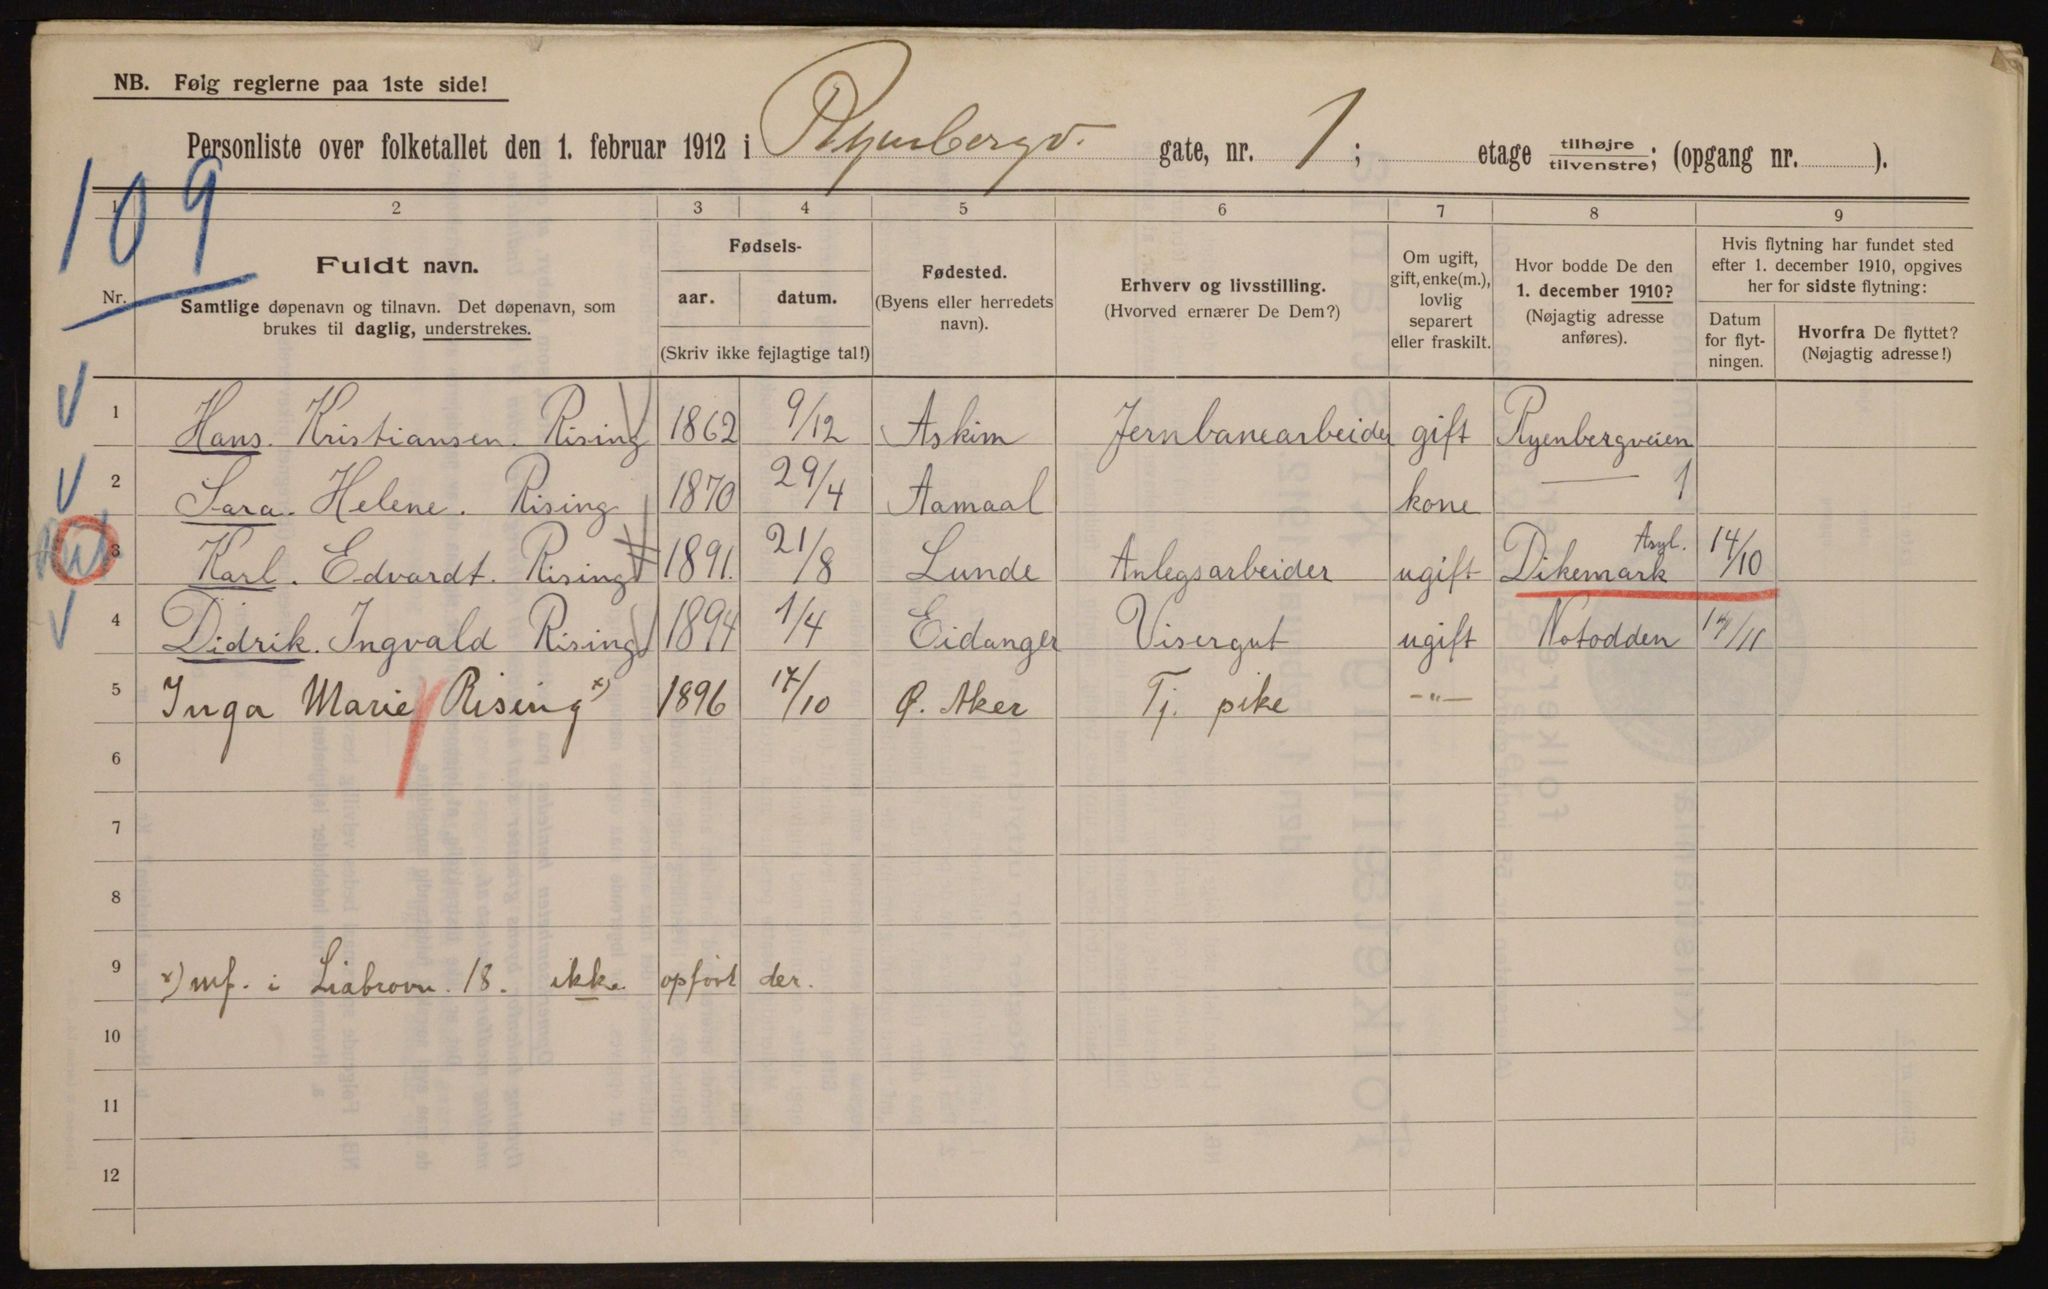 NB. Følg reglerne paa 1ste side!
Personliste over folketallet den 1. februar 1912 i Ryenbergv. gate, nr. 1; etage tilhøjre/tilvenstre; (opgang nr. ).
109
1 2 3 4 5 6 7 8 9
Nr.
Fuldt navn.
Samtlige døpenavn og tilnavn. Det døpenavn, som
brukes til daglig, understrekes.
Fødsels-
aar. datum.
(Skriv ikke fejlagtige tal!)
Fødested.
(Byens eller herredets
navn).
Erhverv og livsstilling.
(Hvorved ernærer De Dem?)
Om ugift,
gift, enke(m.),
lovlig
separert
eller fraskilt.
Hvor bodde De den
1. december 1910?
(Nøjagtig adresse
anføres).
Hvis flytning har fundet sted
efter 1. december 1910, opgives
her for sidste flytning:
Datum
for flyt-
ningen.
Hvorfra De flyttet?
(Nøjagtig adresse!)
1 Hans. Kristiansen. Rising 1862 9/12 Askim Jernbanearbeider gift Ryenbergveien
2 Sara. Helene. Rising 1870 29/4 Aamaal kone — 1
3 Karl. Edvardt. Rising 1891. 21/8 Lunde Anlegsarbeider ugift Dikemark Asyl. 14/10
4 Didrik. Ingvald Rising 1894 1/4 Eidanger Visergut ugift Notodden 14/11
5 Inga Marie Rising x) 1896 17/10 Ø. Aker Tj. pike —"—
6
7
8
9 x) mf. i Liabrovn. 18. ikke opført der.
10
11
12